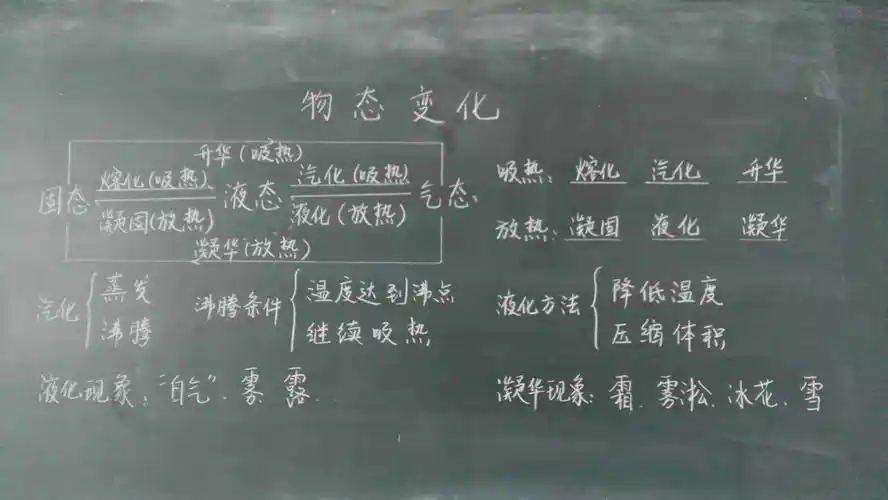 物态变化
升华(吸热)
固态 熔化(吸热) 液态 汽化(吸热) 气态
凝固(放热) 液化(放热)
凝华(放热)
吸热: 熔化 汽化 升华
放热: 凝固 液化 凝华
汽化 { 蒸发
沸腾
沸腾条件 { 温度达到沸点
继续吸热
液化方法 { 降低温度
压缩体积
液化现象: "白气". 雾. 露...
凝华现象: 霜. 雾淞. 冰花. 雪